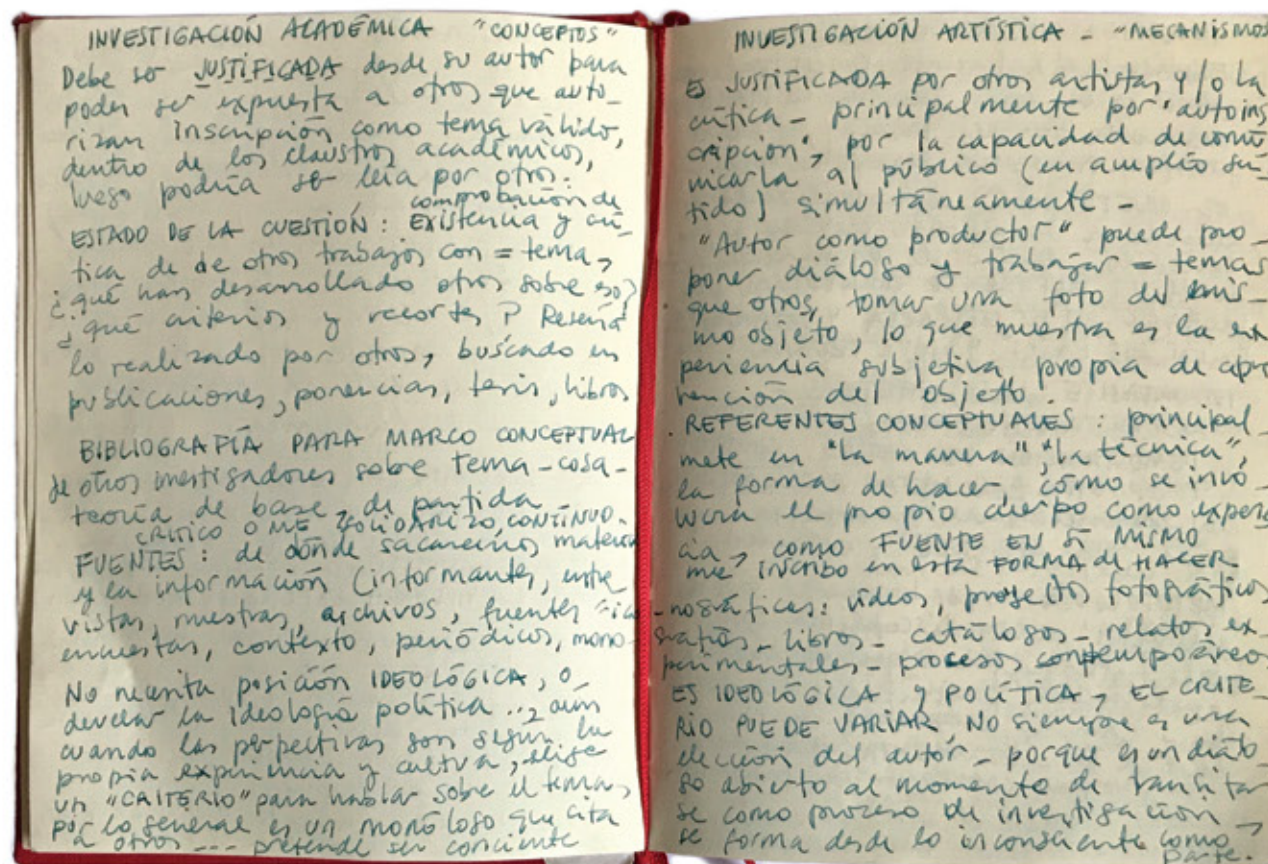 INVESTIGACIÓN ACADÉMICA "CONCEPTOS"
Debe ser JUSTIFICADA desde su autor para
poder ser expuesta a otros que auto-
rizan inscripción como tema válido,
dentro de los claustros académicos,
luego podría ser leía por otros.
comprobación de
ESTADO DE LA CUESTIÓN: Existencia y crí-
tica de de otros trabajos con = tema,
¿qué han desarrollado otros sobre eso?
¿qué criterios y recortes? Reseña
lo realizado por otros, buscado en
publicaciones, ponencias, tesis, libros
BIBLIOGRAFÍA PARA MARCO CONCEPTUAL
de otros investigadores sobre tema-cosa-
teoría de base, de partida
CRITICO O ME SOLIDARIZO, CONTINUO.
FUENTES: de dónde sacaremos material
y la información (informantes, entre
vistas, muestras, archivos, fuentes "ico
encuestas, contexto, periódicos, mono-
No necesita posición IDEOLÓGICA, o
develar la ideología política .., aun
cuando las perpectivas son según la
propia experiencia y cultura, elige
un "CRITERIO" para hablar sobre el tema,
por lo general es un monólogo que cita
a otros --- pretende ser conciente
INVESTIGACIÓN ARTÍSTICA - "MECANISMOS
ES JUSTIFICADA por otros artistas y/o la
crítica - principalmente por "autoins
cripción", por la capacidad de comu
nicarla al público (en amplio sen-
tido) simultáneamente -
"Autor como productor" puede pro-
poner diálogo y trabajar = temas
que otros, tomar una foto del mis-
mo objeto, lo que muestra es la ex
periencia subjetiva, propia de apre
hención del objeto.
REFERENTES CONCEPTUALES: principal
mete en "la manera", "la técnica",
la forma de hacer, cómo se invo-
lucra el propio cuerpo como experi
cia, como FUENTE EN SÍ MISMO
me inscribo en esta FORMA de HACER
-nográficas: vídeos, proyectos fotográficos
grafías - libros - catálogos - relatos ex-
perimentales - procesos contemporáneos
ES IDEOLÓGICA Y POLÍTICA, EL CRITE-
RIO PUEDE VARIAR NO siempre es una
elección del autor - porque es un diálo-
go abierto al momento de transitar
se como proceso de investigación -
se forma desde lo inconsciente como
parte.